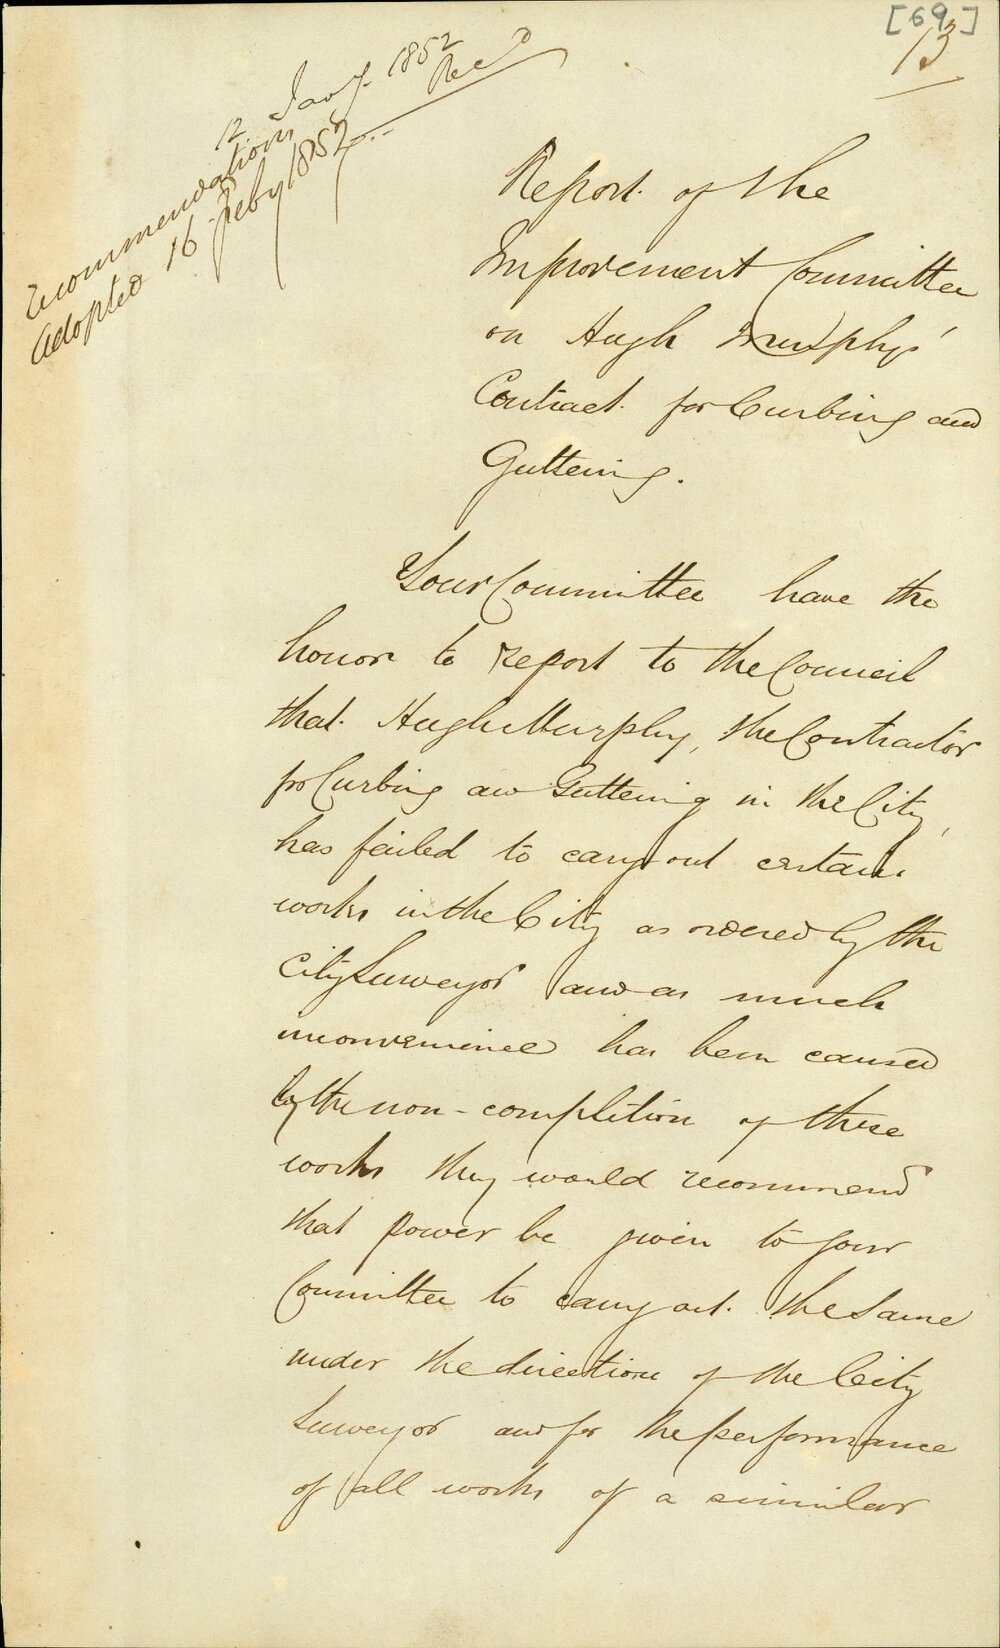 [69]
13
12 Jany. 1852
Recd
recommendations
adopted 16 Feby 1852
Report of the
Improvement Committee
on Hugh Murphys'
Contract for Curbing and
Guttering.
Your Committee have the
honor to report to the Council
that Hugh Murphy, the Contractor
for Curbing and Guttering in the City,
has failed to carry out certain
works in the City as ordered by the
City Surveyor and as much
inconvenience has been caused
by the non-completion of these
works they would recommend
that power be given to your
Committee to carry out the same
under the direction of the City
Surveyor and for the performance
of all works of a similar